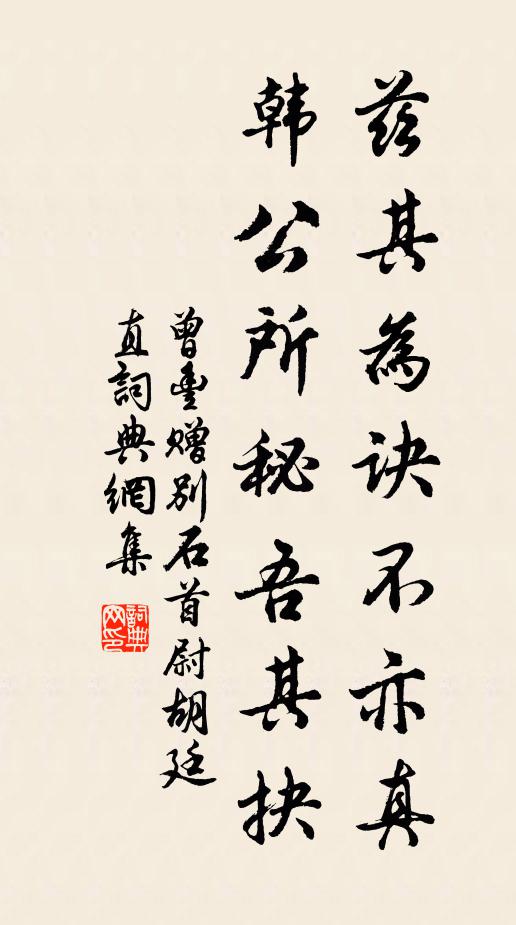 兹其為诀不亦真
韩公所秘吾其抉
曾豊赠别石首尉胡廷
直詞典網集
詞典
网印